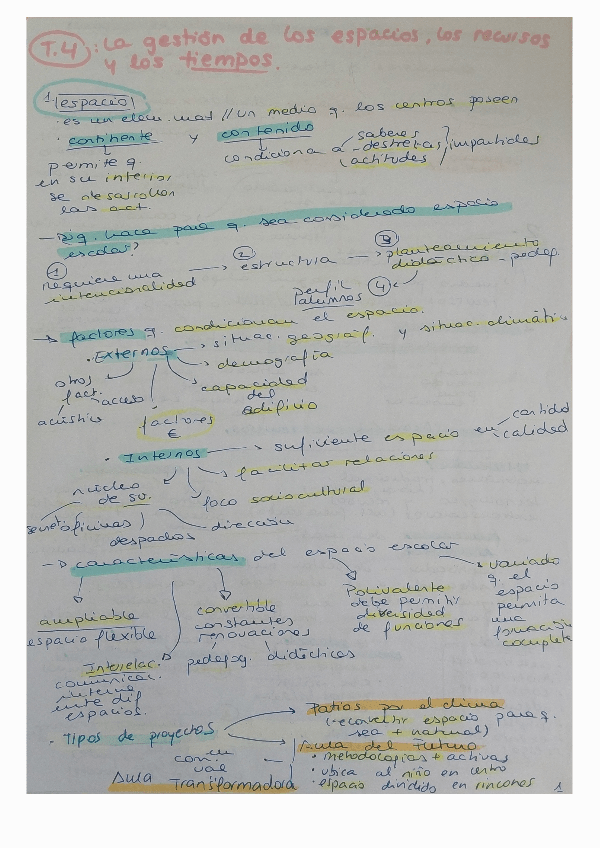 T.4: La gestión de los espacios, los recursos
y los tiempos.
1. espacio
· es un elem. mat // un medio q. los centros poseen
· continente y contenido
permite q. en su interior se desarrollan las act.
condiciona a saberes - destrezas actitudes impartidas
- ¿Q. hace para q. sea considerado espacio
escolar?
① Requiere una intencionalidad → ② estructura → ③ planteamiento didáctico - pedag.
perfil alumnos ④
→ factores q condicionan el espacio.
· Externos → situac. geográf. y situac. climáti
demografía
capacidad del edificio
otros fact.
acceso
acústica
factores €
· Internos → suficiente espacio en cantidad calidad
facilitar relaciones
foco sociocultural
núcleo de sv.
secret oficinas) despachos
dirección
→ características del espacio escolar
variado q. el espacio permita una formación completa
Polivalente debe permitir diversidad de funciones
ampliable
espacio flexible
convertible constantes renovaciones
pedagog. didácticas
Interrelac.
comunicac. interna entre dif espacios.
· Tipos de proyectos
Patios por el clima
(reconvertir espacio para q.
sea + natural)
Aula del Futuro
· metodologías + activas
· ubica al niño en centro
· espacio dividido en rincones
Aula Transformadora
1